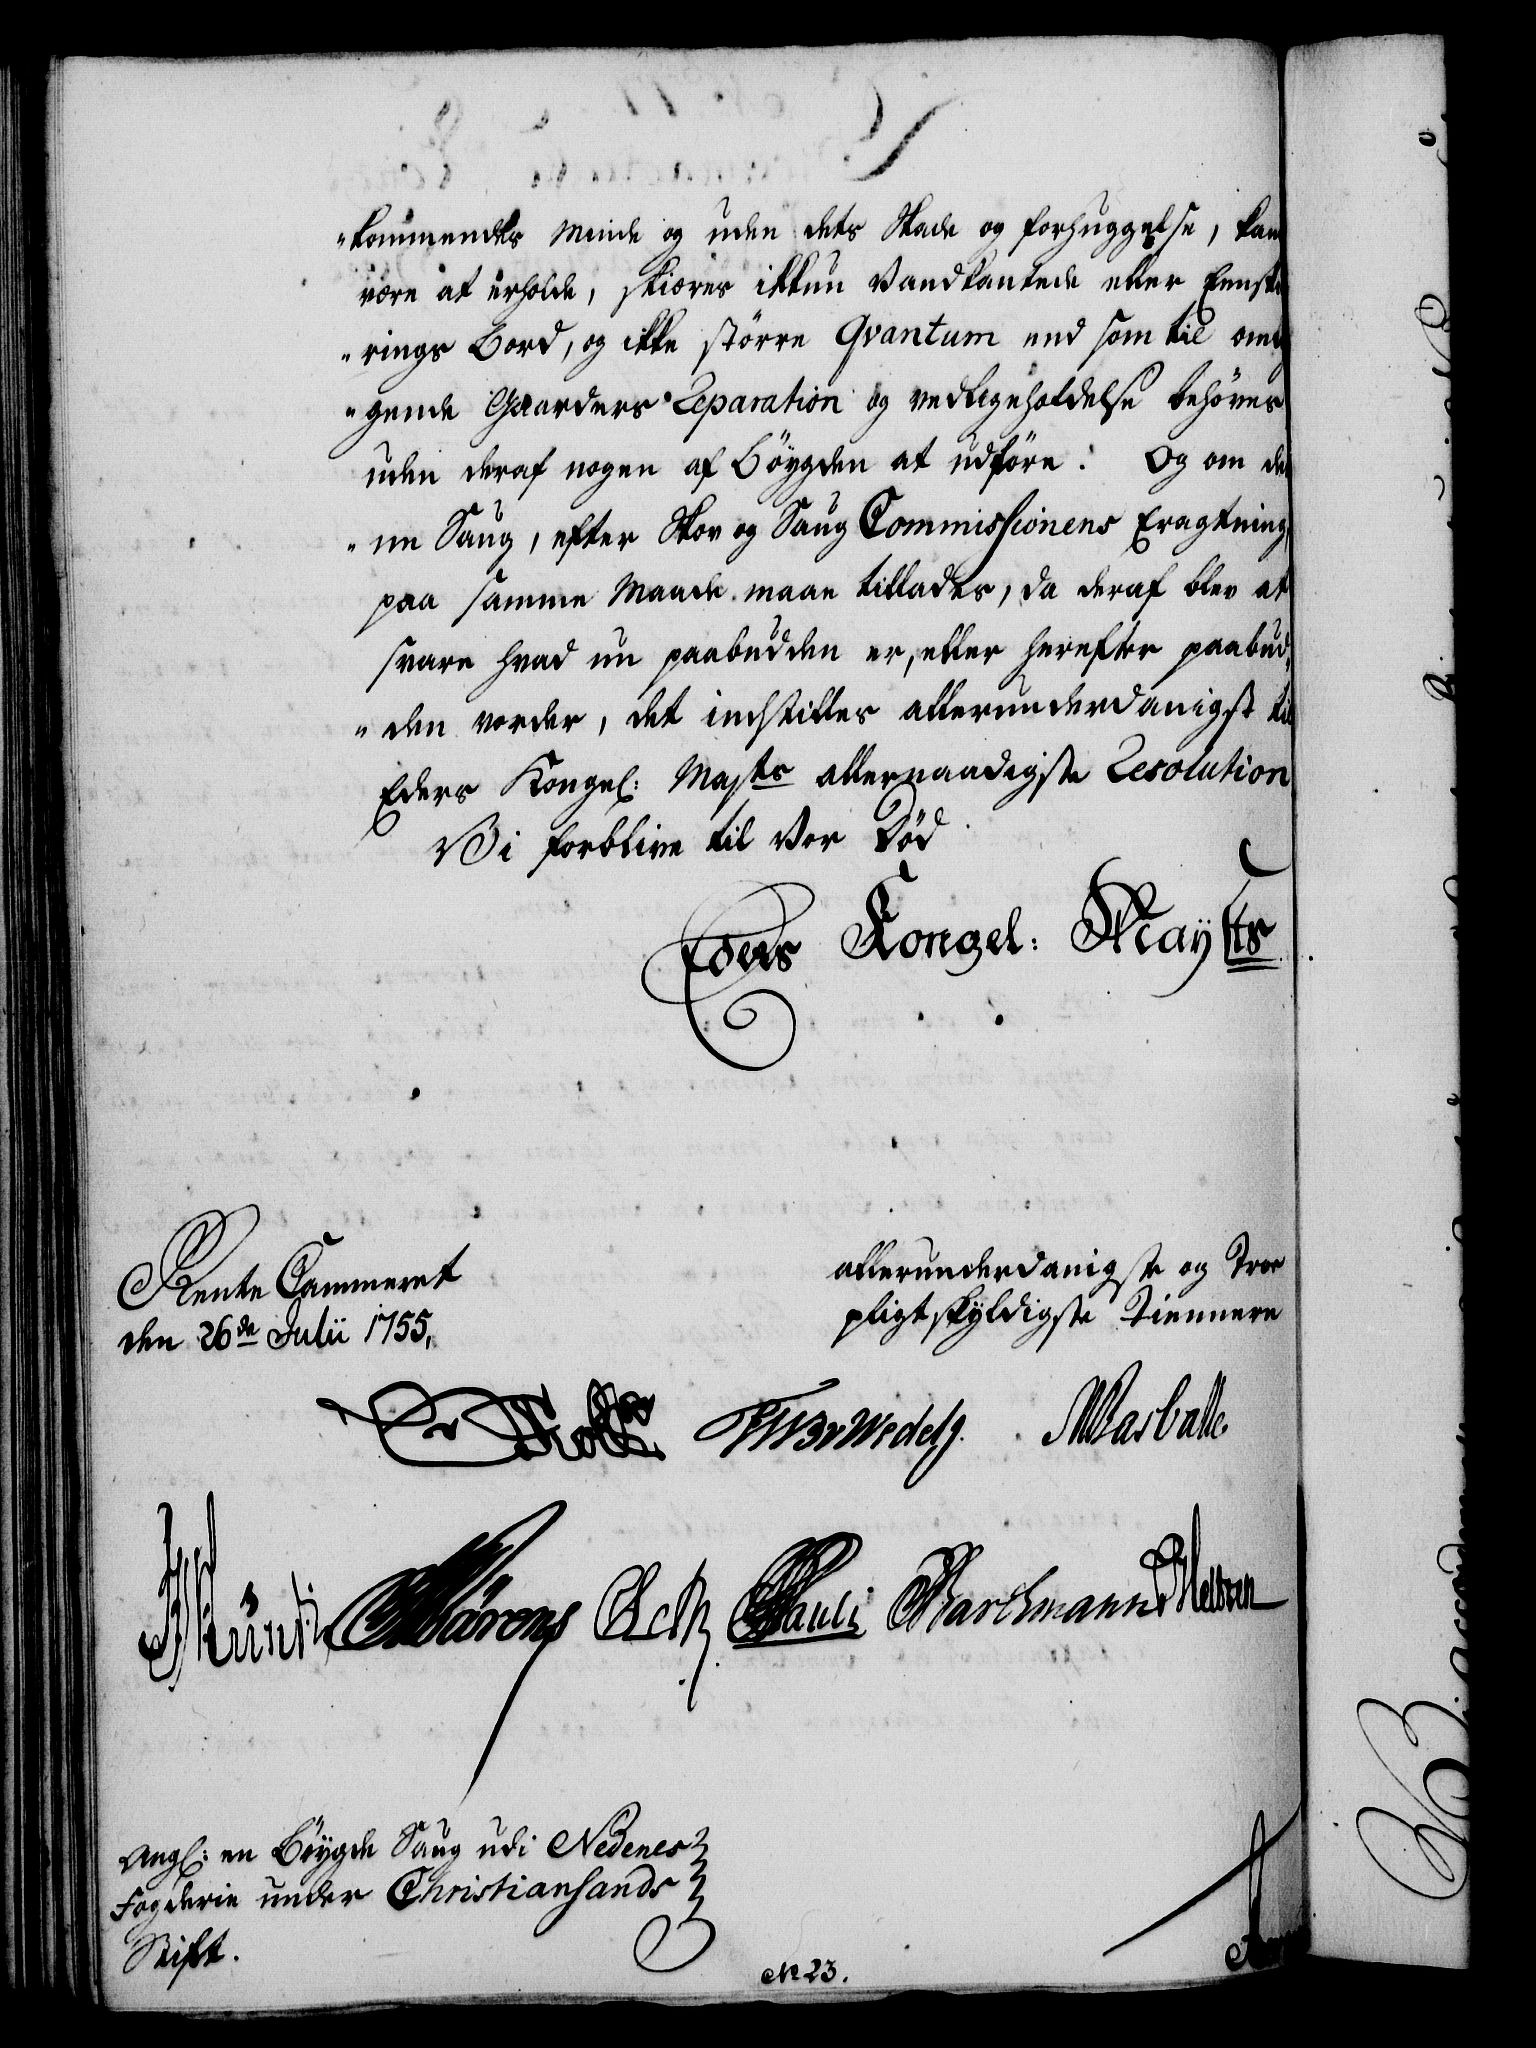 "kommendes Minde og uden dets Skade og forhuggelse, kan
være at erholde, skiæres ikkun Vandkantede eller Eenskæ
"rings Bord, og ikke større Qvantum end som til omlig
"gende Gaarders Reparation og vedligeholdelse behøves
uden deraf nogen af Bøygden at udføre: Og om den
"ne Saug, efter Skov og Saug Commissionens Eragtning,
paa samme Maade maae tillades, da deraf blev at
svare hvad nu paabudden er, eller herefter paabud,
"den vorder, det indstilles allerunderdanigst til
Eders Kongel: Maysts allernaadigste Resolution
Vi forblive til Vor Død
Eders Kongel: Maysts
Rente Cammeret
den 26de Julii 1755,
allerunderdanigste og Troe
pligtskyldigste Tiennere
Wedel
Pauli Barthmann
Angl: en Bøygde Saug udi Nedenes
Fogderie under Christiansands
Stift.
No 23.